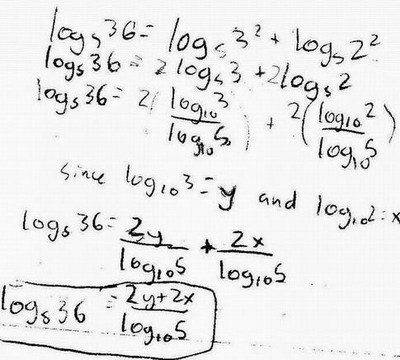 log₅36 = log₅3² + log₅2²
log₅36 = 2log₅3 + 2log₅2
log₅36 = 2(log₁₀3/log₁₀5) + 2(log₁₀2/log₁₀5)
since log₁₀3 = y and log₁₀2 = x
log₅36 = 2y/log₁₀5 + 2x/log₁₀5
log₅36 = 2y+2x/log₁₀5